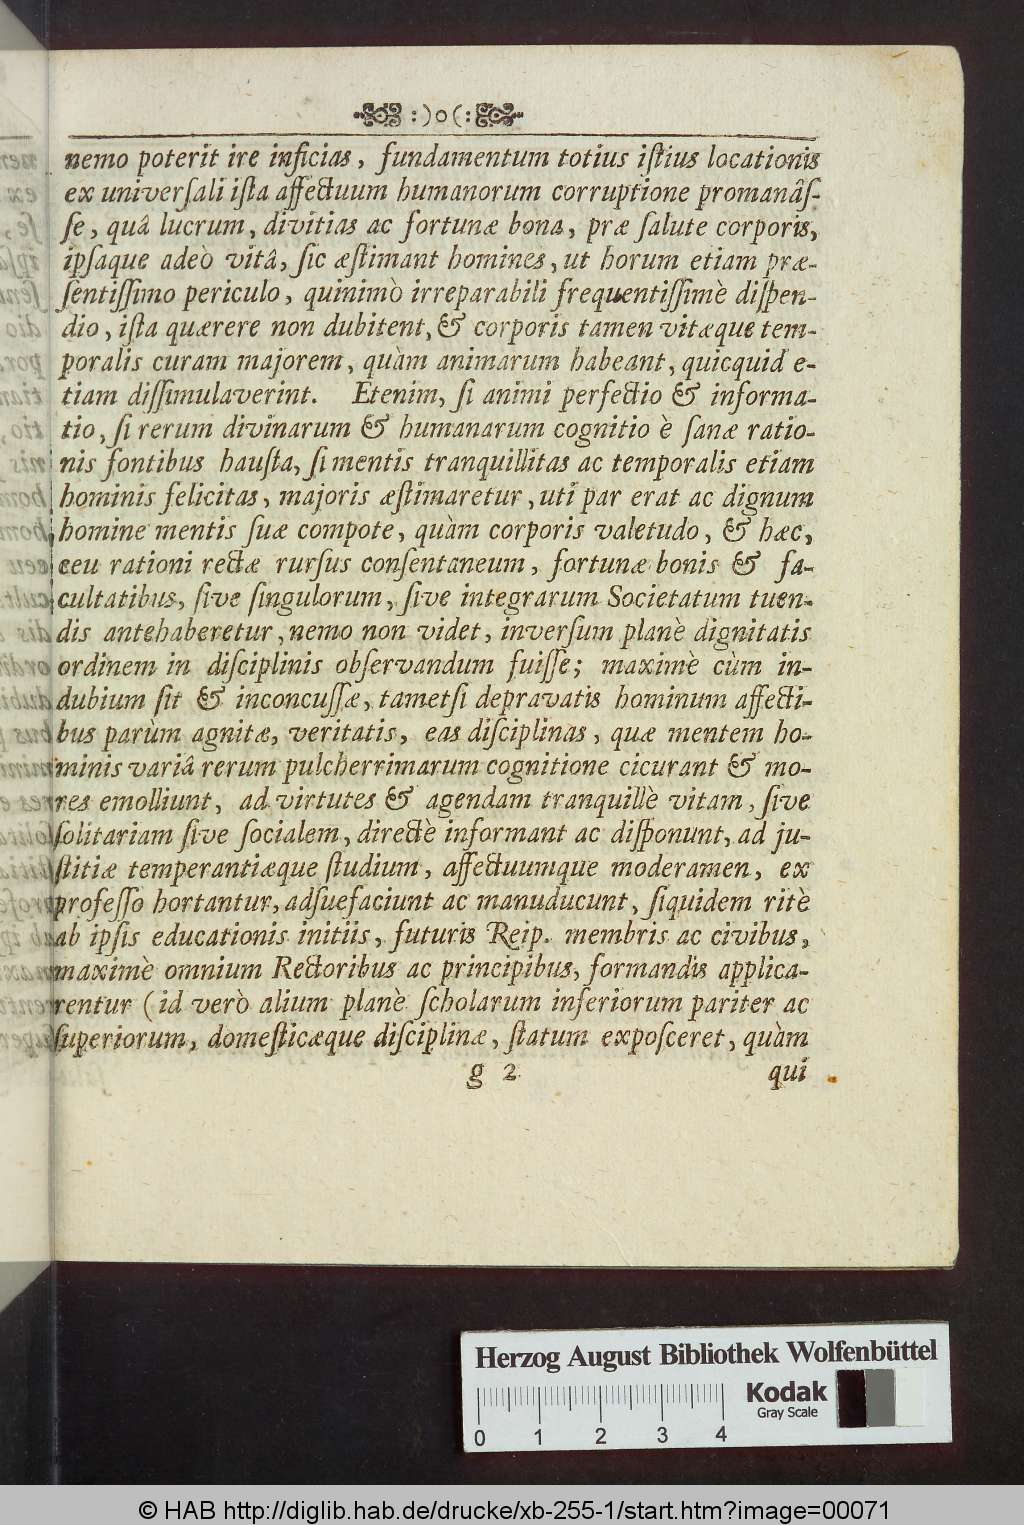 :)o(:
nemo poterit ire inficias, fundamentum totius iſtius locationis
ex univerſali iſta affectuum humanorum corruptione promanâſ-
ſe, quâ lucrum, divitias ac fortunæ bona, præ ſalute corporis,
ipſaque adeò vitâ, ſic æſtimant homines, ut horum etiam præ-
ſentiſſimo periculo, quinimò irreparabili frequentiſſimè diſpen-
dio, iſta quærere non dubitent, & corporis tamen vitæque tem-
poralis curam majorem, quàm animarum habeant, quicquid e-
tiam diſſimulaverint. Etenim, ſi animi perfectio & informa-
tio, ſi rerum divinarum & humanarum cognitio è ſanæ ratio-
nis fontibus hauſta, ſi mentis tranquillitas ac temporalis etiam
hominis felicitas, majoris æſtimaretur, uti par erat ac dignum
homine mentis ſuæ compote, quàm corporis valetudo, & hæc,
ceu rationi rectæ rurſus conſentaneum, fortunæ bonis & fa-
cultatibus, ſive ſingulorum, ſive integrarum Societatum tuen-
dis antehaberetur, nemo non videt, inverſum planè dignitatis
ordinem in diſciplinis obſervandum fuiſſe; maximè cùm in-
dubium ſit & inconcuſſæ, tametſi depravatis hominum affecti-
bus parùm agnitæ, veritatis, eas diſciplinas, quæ mentem ho-
minis variâ rerum pulcherrimarum cognitione cicurant & mo-
res emolliunt, ad virtutes & agendam tranquillè vitam, ſive
ſolitariam ſive ſocialem, directè informant ac diſponunt, ad ju-
ſtitiæ temperantiæque ſtudium, affectuumque moderamen, ex
profeſſo hortantur, adſuefaciunt ac manuducunt, ſiquidem ritè
ab ipſis educationis initiis, futuris Reip. membris ac civibus,
maximè omnium Rectoribus ac principibus, formandis applica-
rentur (id verò alium planè ſcholarum inferiorum pariter ac
ſuperiorum, domeſticæque diſciplinæ, ſtatum expoſceret, quàm
g 2 qui
Herzog August Bibliothek Wolfenbüttel
Kodak
Gray Scale
0 1 2 3 4
© HAB http://diglib.hab.de/drucke/xb-255-1/start.htm?image=00071